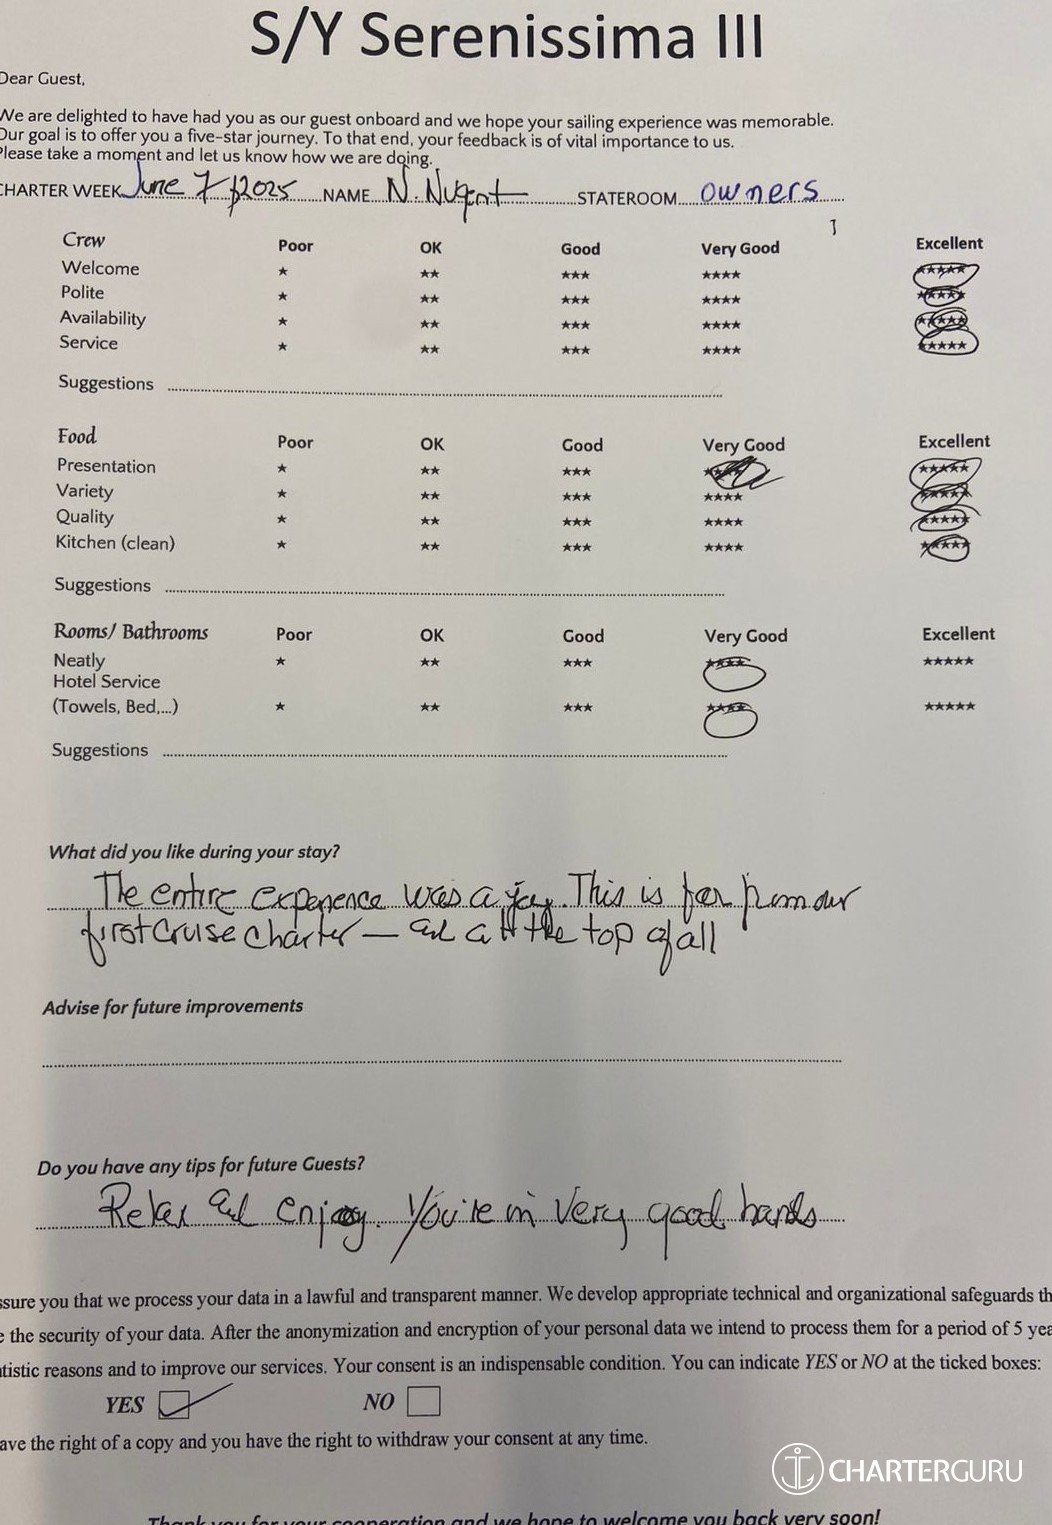 S/Y Serenissima III
Dear Guest,
We are delighted to have had you as our guest onboard and we hope your sailing experience was memorable.
Our goal is to offer you a five-star journey. To that end, your feedback is of vital importance to us.
Please take a moment and let us know how we are doing.
CHARTER WEEK June 7 2025 NAME N. Nugent STATEROOM owners
Crew Poor OK Good Very Good Excellent
Welcome ★ ★★ ★★★ ★★★★ ★★★★★
Polite ★ ★★ ★★★ ★★★★ ★★★★★
Availability ★ ★★ ★★★ ★★★★ ★★★★★
Service ★ ★★ ★★★ ★★★★ ★★★★★
Suggestions
Food Poor OK Good Very Good Excellent
Presentation ★ ★★ ★★★ ★★★★ ★★★★★
Variety ★ ★★ ★★★ ★★★★ ★★★★★
Quality ★ ★★ ★★★ ★★★★ ★★★★★
Kitchen (clean) ★ ★★ ★★★ ★★★★ ★★★★★
Suggestions
Rooms/ Bathrooms Poor OK Good Very Good Excellent
Neatly ★ ★★ ★★★ ★★★★ ★★★★★
Hotel Service
(Towels, Bed,...) ★ ★★ ★★★ ★★★★ ★★★★★
Suggestions
What did you like during your stay?
The entire experience was a joy. This is far from our
first cruise charter – and at the top of all
Advise for future improvements
Do you have any tips for future Guests?
Relax and enjoy. You're in very good hands
ssure you that we process your data in a lawful and transparent manner. We develop appropriate technical and organizational safeguards th
e the security of your data. After the anonymization and encryption of your personal data we intend to process them for a period of 5 yea
tistic reasons and to improve our services. Your consent is an indispensable condition. You can indicate YES or NO at the ticked boxes:
YES NO
ave the right of a copy and you have the right to withdraw your consent at any time.
CHARTERGURU
Thank you for your cooperation and we hope to welcome you back very soon!